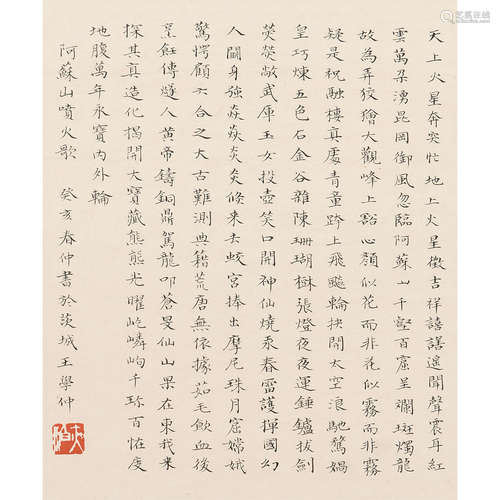 天上火星奔突忙地上火星徵吉祥譆譆遥聞聲震耳紅
雲萬朵湧崑岡御風忽臨阿蘇山千壑百窟呈斕斑燭龍
故為弄狡獪大觀峰上豁心顏似花而非花似霧而非霧
疑是祝融樓真處青童跨上飛飈輪抉開太空浪馳驚媧
皇巧煉五色石金谷雜陳珊瑚樹張燈夜夜運錘鑪拔劍
熒熒敞武庫玉女投壺笑口開神仙燒汞春雷護揮國幻
人鬬身強焱焱炎炎倏來去蛟宮捧出摩尼珠月窟嫦娥
驚愕顧六合之大古難測典籍荒唐無依據茹毛飲血後
烹飪傳燧人黄帝鑄銅鼎駕龍叩蒼旻仙山果在東我来
探其真造化揭開大寶藏熊熊光曜屹嶙峋千珎百恠度
地腹萬年永寶内外輪
阿蘇山噴火歌 癸亥春仲書於茨城王學仲